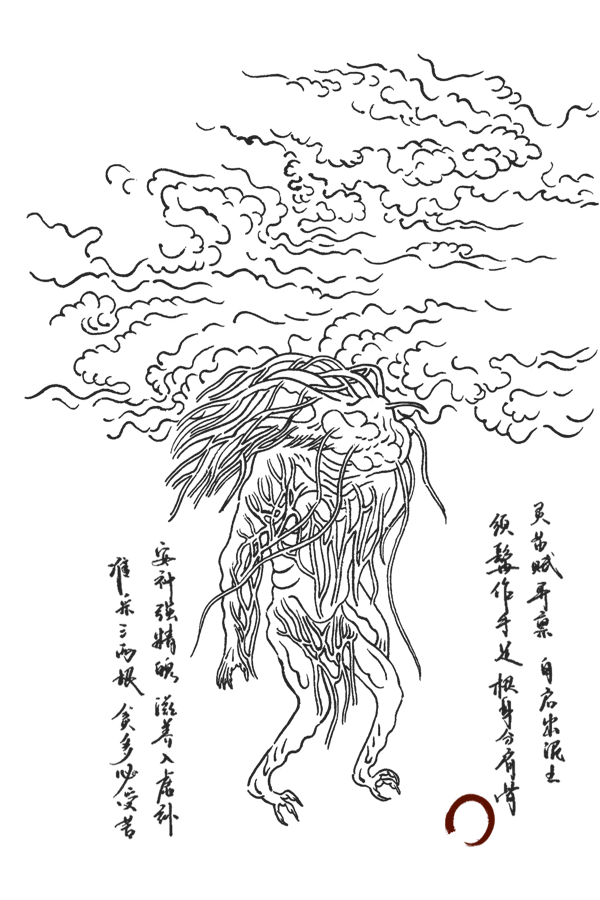 灵苗赋异禀 自启出泥土
须鬓作手足 根身分肩
安神强精魄 滋养入虚
三两根 贪多必受苦